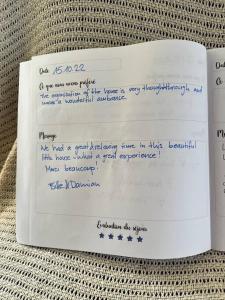 Date 15.10.22
Ce que vous avez préféré
the organisation of the house is very thoughtthrough and
a wonderful ambiance.
Message
We had a great & relaxing time in this beautiful
little house - what a great experience!
Merci beaucoup!
Damian
Évaluation du séjour
Date